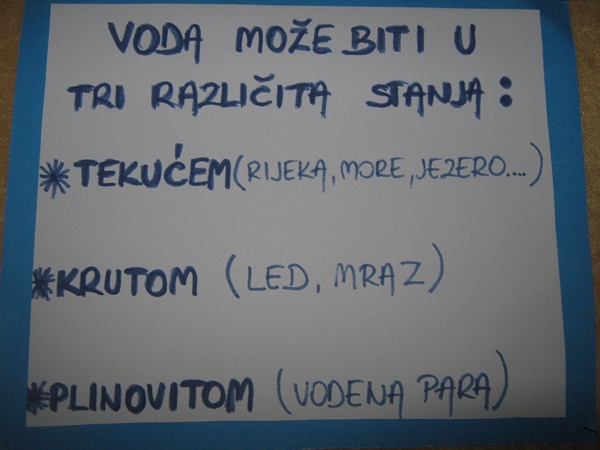 VODA MOŽE BITI U
TRI RAZLIČITA STANJA:
*TEKUĆEM(RIJEKA, MORE, JEZERO....)
*KRUTOM (LED, MRAZ)
*PLINOVITOM (VODENA PARA)